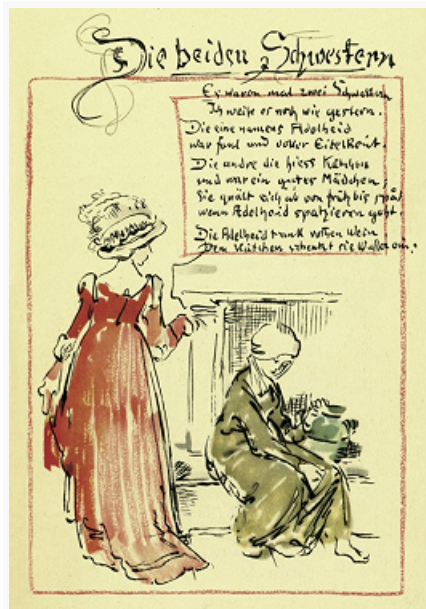 Die beiden Schwestern
Es waren mal zwei Schwestern
Ich weiß es noch wie gestern.
Die eine namens Adelheid
war faul und voller Eitelkeit.
Die andre die hiess Kätchen
und war ein gutes Mädchen,
Sie quält sich ab von früh bis spät
wenn Adelheid spatzieren geht
Die Adelheid trank rothen Wein
Dem Kätchen schenkt sie Wasser ein.